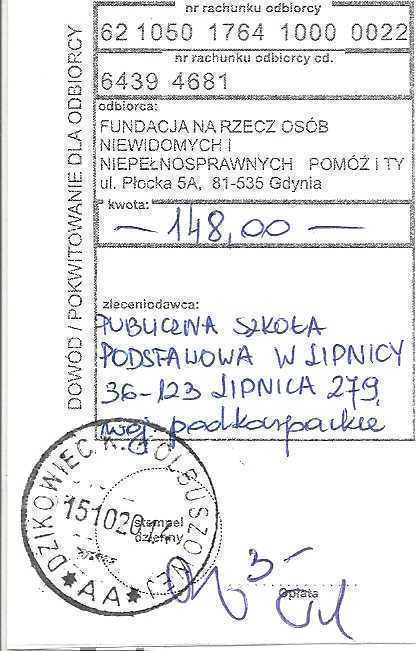 DOWÓD / POKWITOWANIE DLA ODBIORCY
nr rachunku odbiorcy
62 1050 1764 1000 0022
nr rachunku odbiorcy cd.
6439 4681
odbiorca:
FUNDACJA NA RZECZ OSÓB
NIEWIDOMYCH I
NIEPEŁNOSPRAWNYCH POMÓŻ I TY
ul. Płocka 5A, 81-535 Gdynia
kwota:
— 148,00 —
zleceniodawca:
PUBLICZNA SZKOŁA
PODSTAWOWA W LIPNICY
36-123 LIPNICA 279
woj. podkarpackie
DZIKOWIEC K. KOLBUSZOWEJ
151020
stempel
dzienny
*AA*
3-
Opłata